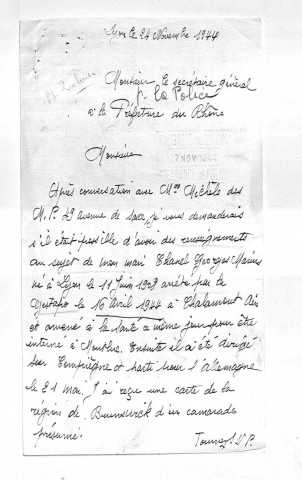 Lyon le 24 Novembre 1944
Monsieur le secrétaire général
p. la Police
a la Préfecture du Rhône
NOV 1944
Monsieur
Après conversation avec Mme Michèle des
M.P. 29 avenue de Saxe, je vous demanderais
s'il était possible d'avoir des renseignements
au sujet de mon mari Chanel Georges Marius
né à Lyon le 11 Juin 1909 arrêté par la
Gestapo le 16 Avril 1944 à Chalamont Ain
et amené à la Santé ce même jour pour être
interné à Montluc. Ensuite il a été dirigé
sur Compiègne et parti pour l'Allemagne
le 21 mai. J'ai reçu une carte de la
région de Brunswick d'un camarade
présumé.
T.S.V.P.